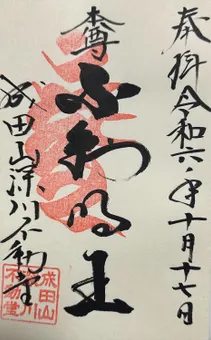 奉拝令和六年十月十七日
本尊
不動明王
成田山深川不動堂
成田山
深川
不動堂